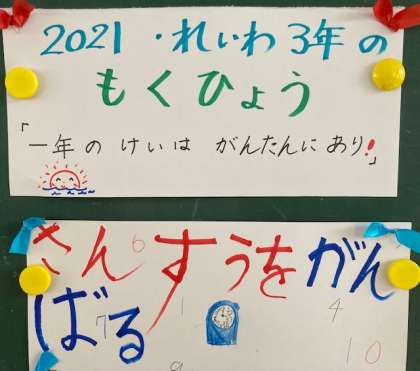 2021・れいわ3年の
もくひょう
「一年のけいは がんたんにあり!」
さんすうをがん
ばる
6
7
1
4
10
9